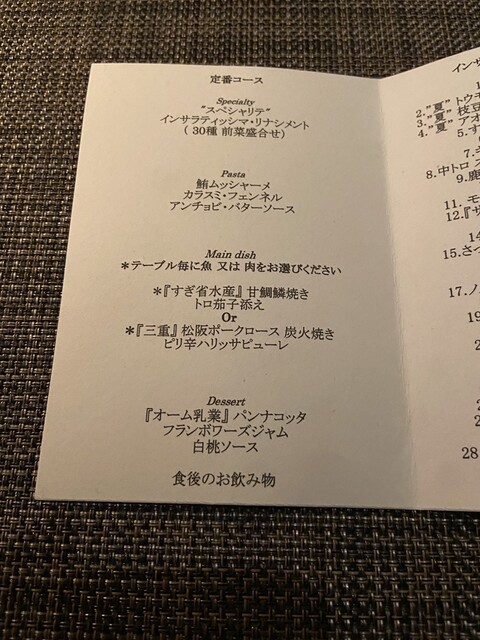 定番コース
Specialty
"スペシャリテ"
インサラティッシマ・リナシメント
( 30種 前菜盛合せ)
Pasta
鮪ムッシャーメ
カラスミ・フェンネル
アンチョビ・バターソース
Main dish
＊テーブル毎に魚 又は 肉をお選びください
＊『すぎ省水産』甘鯛鱗焼き
トロ茄子添え
Or
＊『三重』松阪ポークロース 炭火焼き
ピリ辛ハリッサピューレ
Dessert
『オーム乳業』パンナコッタ
フランボワーズジャム
白桃ソース
食後のお飲み物
インサ
2."夏"トウモ
3."夏"枝豆
4."夏"アオ
5.す
7.
8.中トロ
9.鹿
11. モ
12.『サ
14
15.さっ
17.ノ
19
2
28